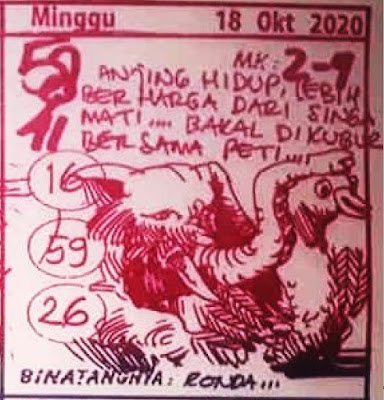 Minggu 18 Okt 2020
MK: 2-9
ANJING HIDUP, LEBIH
BERHARGA DARI SINGA
MATI.... BAKAL DIKUBUR
11 BERSAMA PETI....
16
59
26
BINATANGNYA: RONDA...